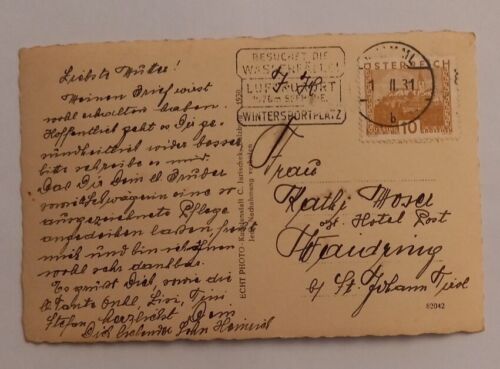 Liebste Mutter!
Meinen Brief wirst
wohl erhalten haben.
Hoffentlich geht es Dir ge-
sundheitlich wieder besser
bitte schreibe es mir.
Das Dir Dein Bruder
eine so
ausgezeichnete Pflege
angedeihen lassen, freut
mich und bin ihnen
wohl sehr dankbar.
Es grüsst Dich, sowie die
Tante Onkl, Lisi, Tini
Stefan herzlichst Dein
Dich liebender Sohn Heinrich
ECHT PHOTO
Jede Nachahmung verboten
BESUCHET DIE
WASSERFÄLLE!
LUFTKURORT
WINTERSPORTPLATZ
II.31
b
ÖSTERREICH
10
Frau
Kathi Moser
Hotel Post
Waidring
b/ St. Johann Tirol
82042